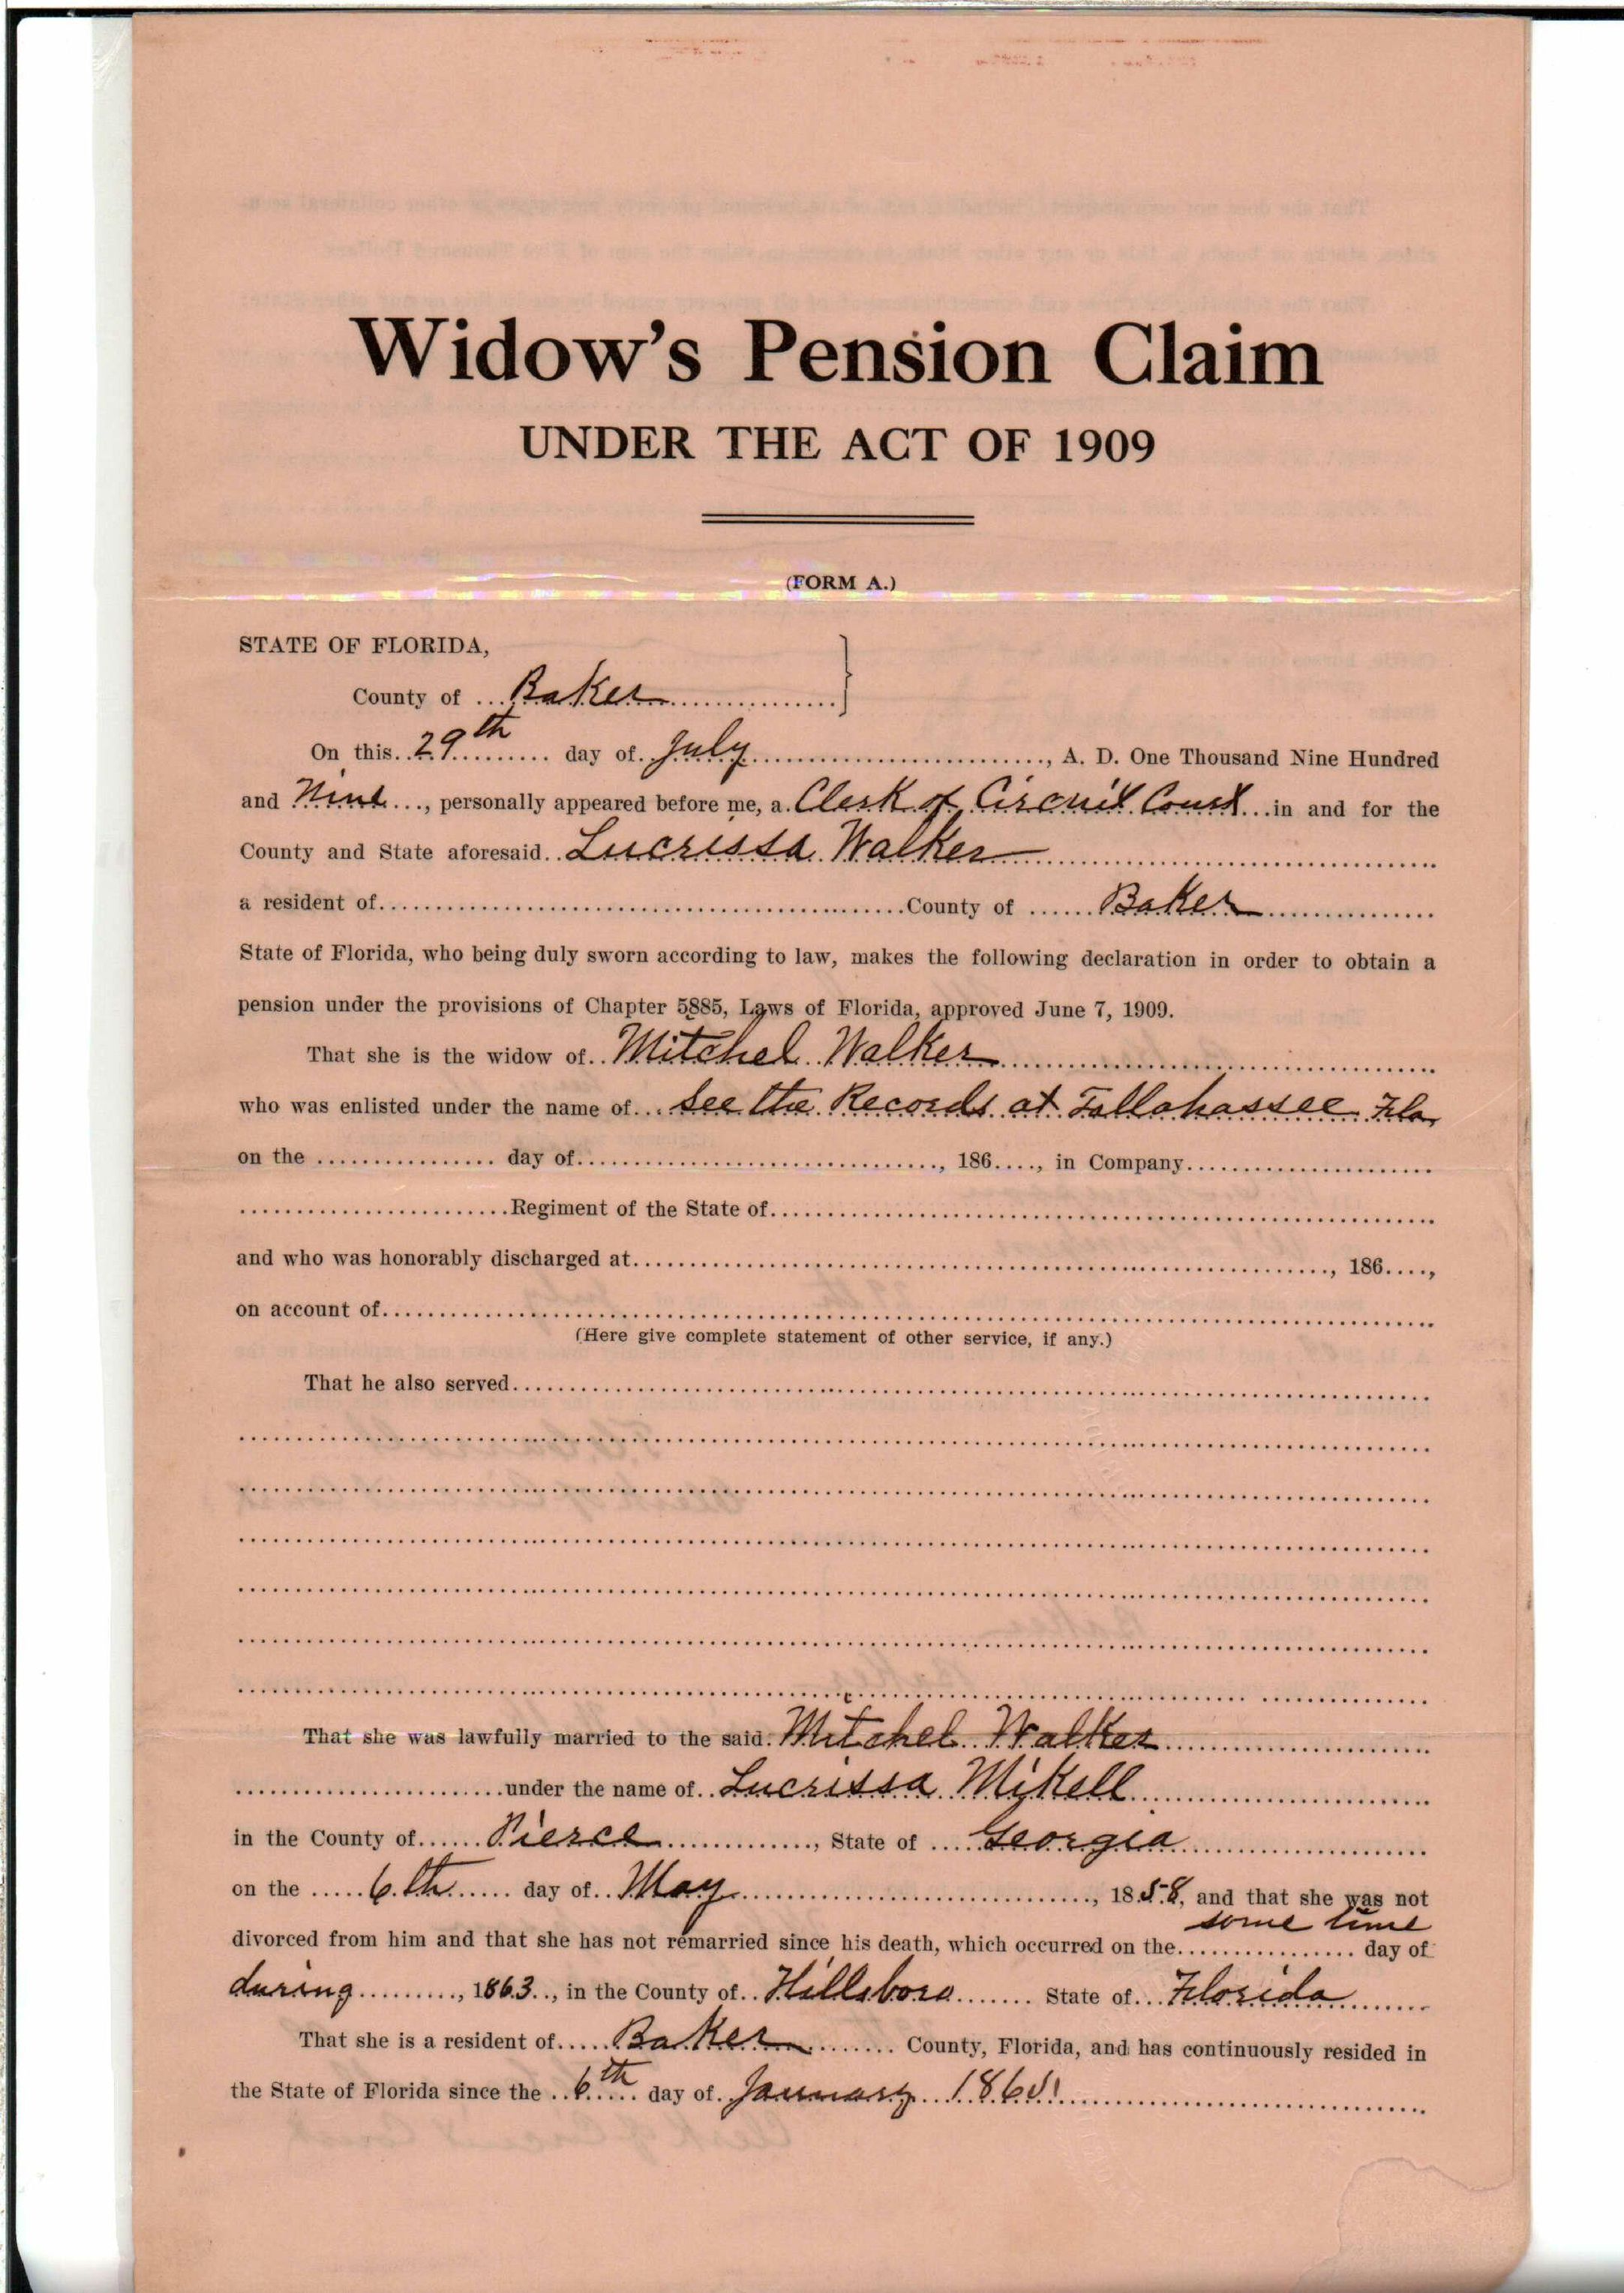 Widow's Pension Claim
UNDER THE ACT OF 1909
(FORM A.)
STATE OF FLORIDA,
County of Baker
On this 29th day of July, A. D. One Thousand Nine Hundred
and Nine, personally appeared before me, a Clerk of Circuit Court in and for the
County and State aforesaid Lucrissa Walker
a resident of County of Baker
State of Florida, who being duly sworn according to law, makes the following declaration in order to obtain a
pension under the provisions of Chapter 5885, Laws of Florida, approved June 7, 1909.
That she is the widow of Mitchel Walker
who was enlisted under the name of See the Records at Tallahassee Fla,
on the day of, 186, in Company
Regiment of the State of
and who was honorably discharged at, 186,
on account of
(Here give complete statement of other service, if any.)
That he also served
That she was lawfully married to the said Mitchel Walker
under the name of Lucrissa Mikell
in the County of Pierce, State of Georgia
on the 6th day of May, 1858, and that she was not
some time
divorced from him and that she has not remarried since his death, which occurred on the day of
during, 1863, in the County of Hillsboro State of Florida
That she is a resident of Baker County, Florida, and has continuously resided in
the State of Florida since the 6th day of January